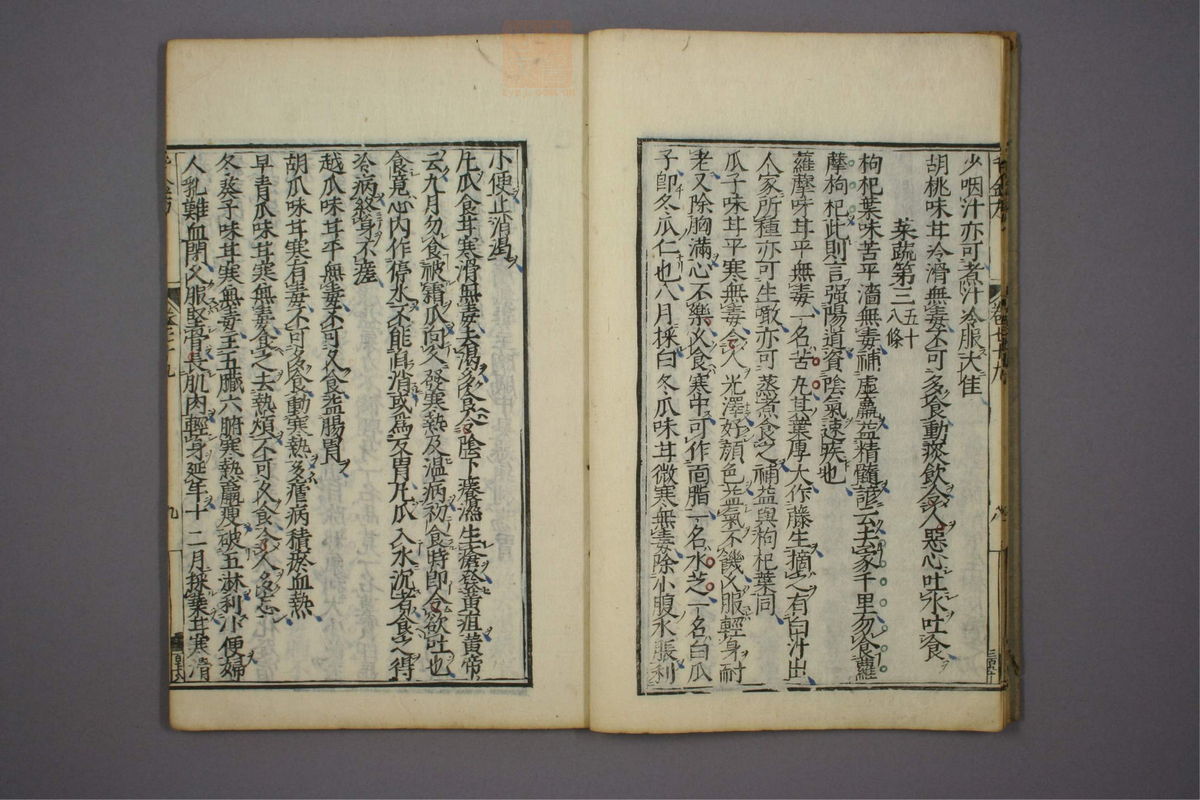 少咽汁亦可煮汁冷服大佳
胡桃味甘冷滑無毒不可多食動痰飲令人惡心吐水吐食
菜蔬第三五十八條
枸杞葉味苦平濇無毒補虛羸益精髓諺云去家千里勿食蘿
摩枸杞此則言强陽道資陰氣速疾也
蘿摩味甘平無毒一名苦丸其葉厚大作藤生摘之有白汁出
人家所種亦可生噉亦可蒸煮食之補益與枸杞葉同
瓜子味甘平寒無毒令人光澤好顏色益氣不饑久服輕身耐
老又除胸滿心不樂久食寒中可作面脂一名水芝一名白瓜
子即冬瓜仁也八月採白冬瓜味甘微寒無毒除小腹水脹利
小便止消渴
凡瓜食甘寒滑無毒去渴多食令陰下癢濕生瘡發黃疸黃帝
云九月勿食被霜瓜向冬發寒熱及温病初食時即令欲吐也
食竟心内作停水不能自消或爲反胃凡瓜入水沉者食之得
冷病終身不瘥
越瓜味甘平無毒不可久食益腸胃
胡瓜味甘寒有毒不可多食動寒熱多瘧病積瘀血熱
早青瓜味甘寒無毒食之去熱煩不可久食令人多忘
冬葵子味甘寒無毒主五臟六腑寒熱羸瘦破五淋利小便婦
人乳難血閉久服堅骨長肌肉輕身延年十二月採葉甘寒滑